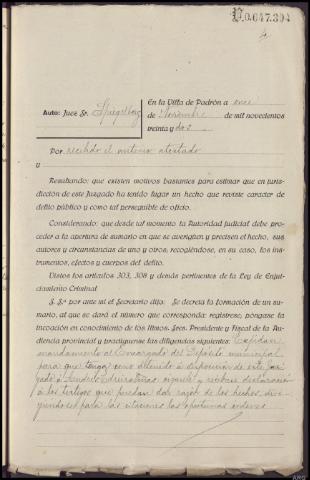 0.047.394
En la Villa de Padrón a once
Auto: Juez Sr.
de Noviembre de mil novecientos
treinta y dos
Por recibido el anterior atestado
y
Resultando: que existen motivos bastantes para estimar que en juris-
dicción de este Juzgado ha tenido lugar un hecho que reviste carácter de
delito público y como tal perseguible de oficio.
Considerando: que desde tal momento la Autoridad judicial debe pro-
ceder a la apertura de sumario en que se averigüen y precisen el hecho, sus
autores y circunstancias de uno y otros; recogiéndose, en su caso, los ins-
trumentos, efectos y cuerpos del delito.
Vistos los artículos 303, 308 y demás pertinentes de la Ley de Enjui-
ciamiento Criminal
S. Sª por ante mí el Secretario dijo: Se decreta la formación de un su-
mario, al que se dará el número que corresponda; regístrese, póngase la
incoación en conocimiento de los Iltmos. Sres. Presidente y Fiscal de la Au-
diencia provincial y tradíquense las diligencias siguientes: Expídase
mandamiento al Encargado del Depósito municipal
para que tenga como detenido á disposición de este Juz-
gado á
á los testigos que puedan dar razón de los hechos, diri-
giéndose para las citaciones las oportunas ordenes